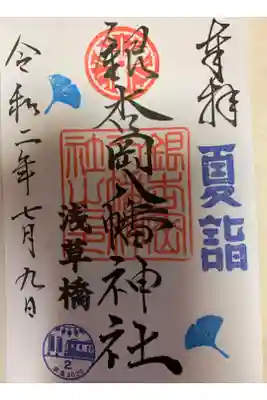 奉拝
夏詣
銀杏岡八幡神社
浅草橋
令和二年七月九日
2